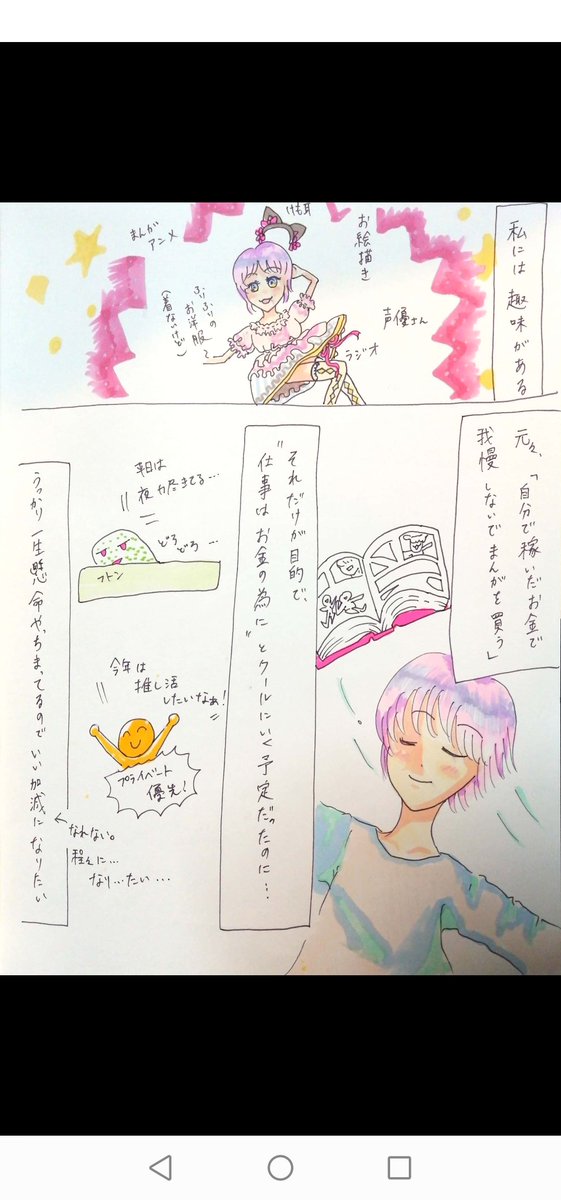 私には趣味がある
お絵描き
けも耳
まんが
アニメ
声優さん
ラジオ
ふりふりの
お洋服
(着ないけど)
元々、「自分で稼いだお金で
我慢しないでまんがを買う」
それだけが目的で、
"仕事はお金の為に"とクールにいく予定だったのに…
朝は
夜力尽きてる…
どろどろ…
フトン
今年は
推し活
したいなぁ!
プライベート
優先!
うっかり一生懸命やっちまってるのでいい加減になりたい
←なれない。
程々に…
なり…たい…